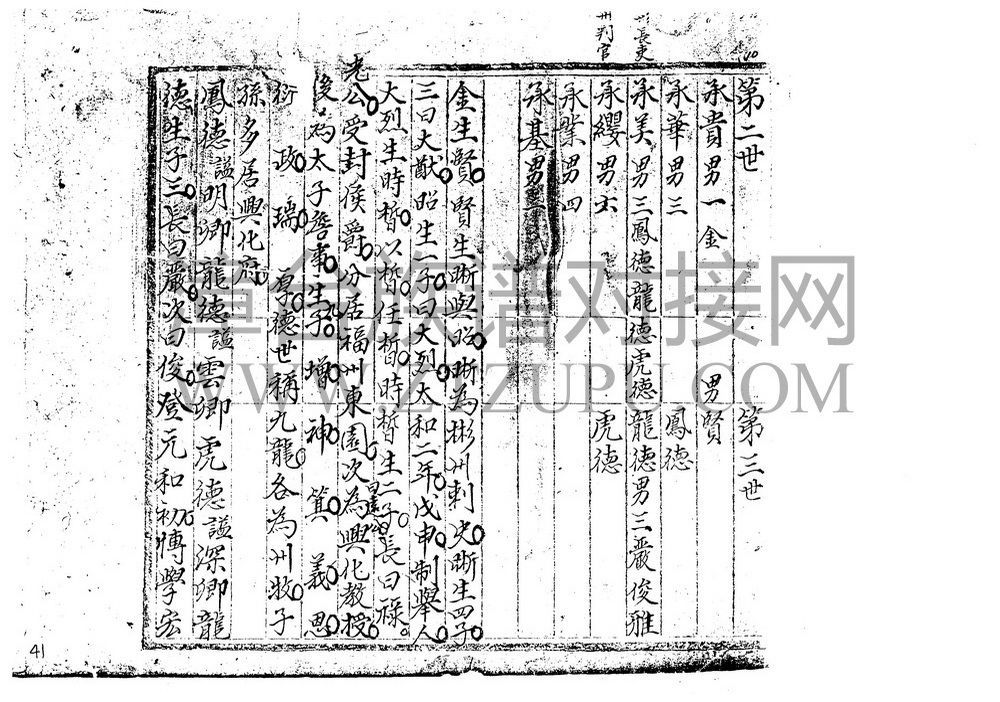 州判官
州長吏
第二世 第三世
承貴男一金 男賢
承華男三 鳳德
承美男三鳳德龍德虎德 龍德男三嚴俊雅
承纓男六 虎德
承業男四
承基男三
金生賢賢生晰與昭晰為彬州刺史晰生四子
三曰大猷昭生一子曰大烈太和二年戊申制舉人
大烈生時晳以晳任晳時晳生二子長曰祿
老公受封侯爵分居福州東園次為興化教授
後為太子詹事生九子增神箕義恩
衍政璃厚德世稱九龍各為州牧子
孫多居興化府
鳳德謚明卿龍德謚雲卿虎德謚深卿龍
德生子三長曰嚴次曰俊登元和初博學宏
41
章舍族谱对接网
WWW.ZTZUPU.COM